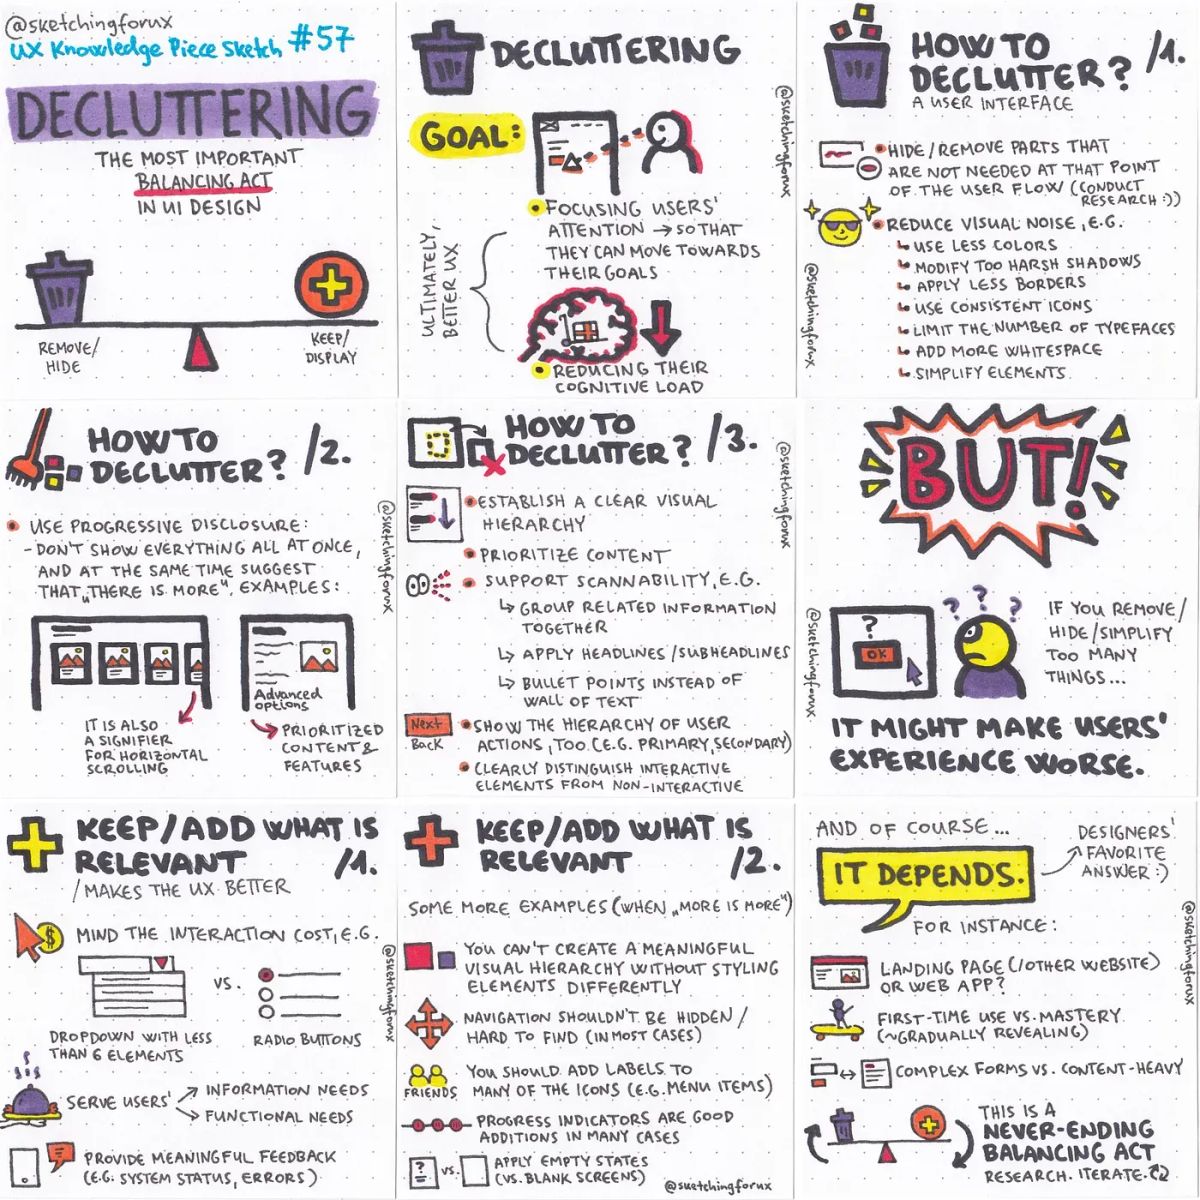 @sketchingforux
UX Knowledge Piece Sketch #57
DECLUTTERING
THE MOST IMPORTANT
BALANCING ACT
IN UI DESIGN
REMOVE/
HIDE
KEEP/
DISPLAY
DECLUTTERING
GOAL:
FOCUSING USERS'
ATTENTION → SO THAT
THEY CAN MOVE TOWARDS
THEIR GOALS
ULTIMATELY,
BETTER UX
REDUCING THEIR
COGNITIVE LOAD
@sketchingforux
HOW TO
DECLUTTER? /1.
A USER INTERFACE
HIDE/REMOVE PARTS THAT
ARE NOT NEEDED AT THAT POINT
OF THE USER FLOW (CONDUCT
RESEARCH :))
REDUCE VISUAL NOISE, E.G.
↳ USE LESS COLORS
↳ MODIFY TOO HARSH SHADOWS
↳ APPLY LESS BORDERS
↳ USE CONSISTENT ICONS
↳ LIMIT THE NUMBER OF TYPEFACES
↳ ADD MORE WHITESPACE
↳ SIMPLIFY ELEMENTS
@sketchingforux
HOW TO
DECLUTTER? /2.
USE PROGRESSIVE DISCLOSURE:
- DON'T SHOW EVERYTHING ALL AT ONCE,
AND AT THE SAME TIME SUGGEST
THAT „THERE IS MORE". EXAMPLES:
Advanced
options
IT IS ALSO
A SIGNIFIER
FOR HORIZONTAL
SCROLLING
PRIORITIZED
CONTENT &
FEATURES
@sketchingforux
HOW TO
DECLUTTER? /3.
ESTABLISH A CLEAR VISUAL
HIERARCHY
PRIORITIZE CONTENT
SUPPORT SCANNABILITY, E.G.
↳ GROUP RELATED INFORMATION
TOGETHER
↳ APPLY HEADLINES/SUBHEADLINES
↳ BULLET POINTS INSTEAD OF
WALL OF TEXT
Next
Back
SHOW THE HIERARCHY OF USER
ACTIONS, TOO (E.G. PRIMARY, SECONDARY)
CLEARLY DISTINGUISH INTERACTIVE
ELEMENTS FROM NON-INTERACTIVE
@sketchingforux
BUT!
?
OK
? ? ?
IF YOU REMOVE/
HIDE/SIMPLIFY
TOO MANY
THINGS...
IT MIGHT MAKE USERS'
EXPERIENCE WORSE.
@sketchingforux
KEEP/ADD WHAT IS
RELEVANT /1.
/MAKES THE UX BETTER
$
MIND THE INTERACTION COST, E.G.
VS.
DROPDOWN WITH LESS
THAN 6 ELEMENTS
RADIO BUTTONS
SERVE USERS'
→ INFORMATION NEEDS
→ FUNCTIONAL NEEDS
PROVIDE MEANINGFUL FEEDBACK
(E.G. SYSTEM STATUS, ERRORS)
@sketchingforux
KEEP/ADD WHAT IS
RELEVANT /2.
SOME MORE EXAMPLES (WHEN „MORE IS MORE")
YOU CAN'T CREATE A MEANINGFUL
VISUAL HIERARCHY WITHOUT STYLING
ELEMENTS DIFFERENTLY
NAVIGATION SHOULDN'T BE HIDDEN/
HARD TO FIND (IN MOST CASES)
FRIENDS
YOU SHOULD ADD LABELS TO
MANY OF THE ICONS (E.G. MENU ITEMS)
PROGRESS INDICATORS ARE GOOD
ADDITIONS IN MANY CASES
? VS.
APPLY EMPTY STATES
(VS. BLANK SCREENS)
@sketchingforux
AND OF COURSE...
IT DEPENDS.
DESIGNERS'
FAVORITE
ANSWER :)
FOR INSTANCE:
LANDING PAGE (/OTHER WEBSITE)
OR WEB APP?
FIRST-TIME USE VS. MASTERY
(~GRADUALLY REVEALING)
COMPLEX FORMS VS. CONTENT-HEAVY
THIS IS A
NEVER-ENDING
BALANCING ACT
RESEARCH. ITERATE.
@sketchingforux